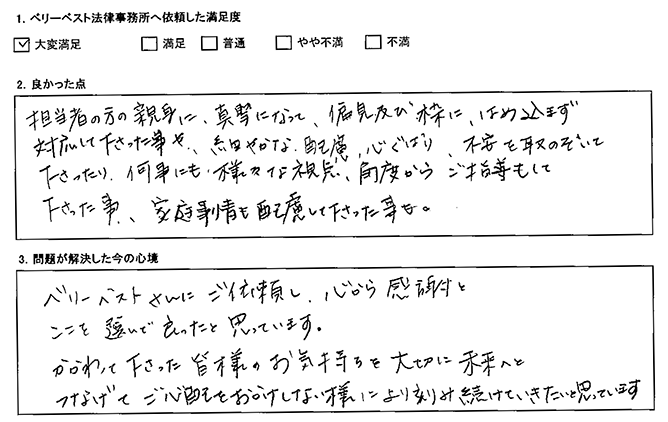 1. ベリーベスト法律事務所へ依頼した満足度
☑ 大変満足 □ 満足 □ 普通 □ やや不満 □ 不満
2. 良かった点
担当者の方の親身に、真摯になって、偏見及び枠に、はめ込まず
対応して下さった事や、細やかな配慮、心くばり、不安を取りのぞいて
下さったり、何事にも様々な視点、角度からご指導もして
下さった事、家庭事情も配慮して下さった事も。
3. 問題が解決した今の心境
ベリーベストさんにご依頼し、心から感謝と
ここを選んで良かったと思っています。
かかわって下さった皆様のお気持ちを大切に未来へと
つなげてご心配をおかけしない様により刻み続けていきたいと思っています